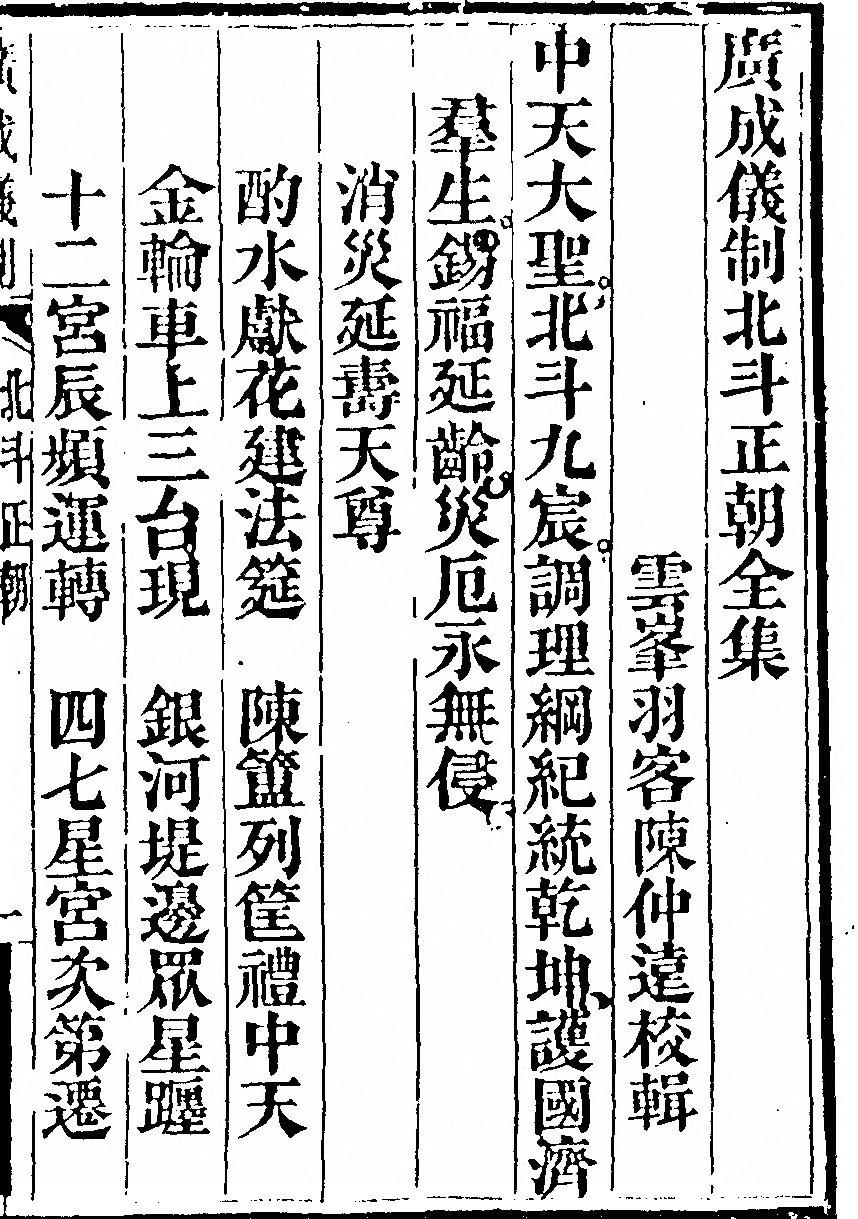 廣成儀制北斗正朝全集
雲峯羽客陳仲遠校輯
中天大聖北斗九宸調理綱紀統乾坤護國濟
羣生錫福延齡災厄永無侵
消災延壽天尊
酌水獻花建法筵　陳簠列筐禮中天
金輪車上三台現　銀河堤邊眾星躔
十二宮辰頻運轉　四七星宮次第遷
廣成儀制　北斗正朝　一